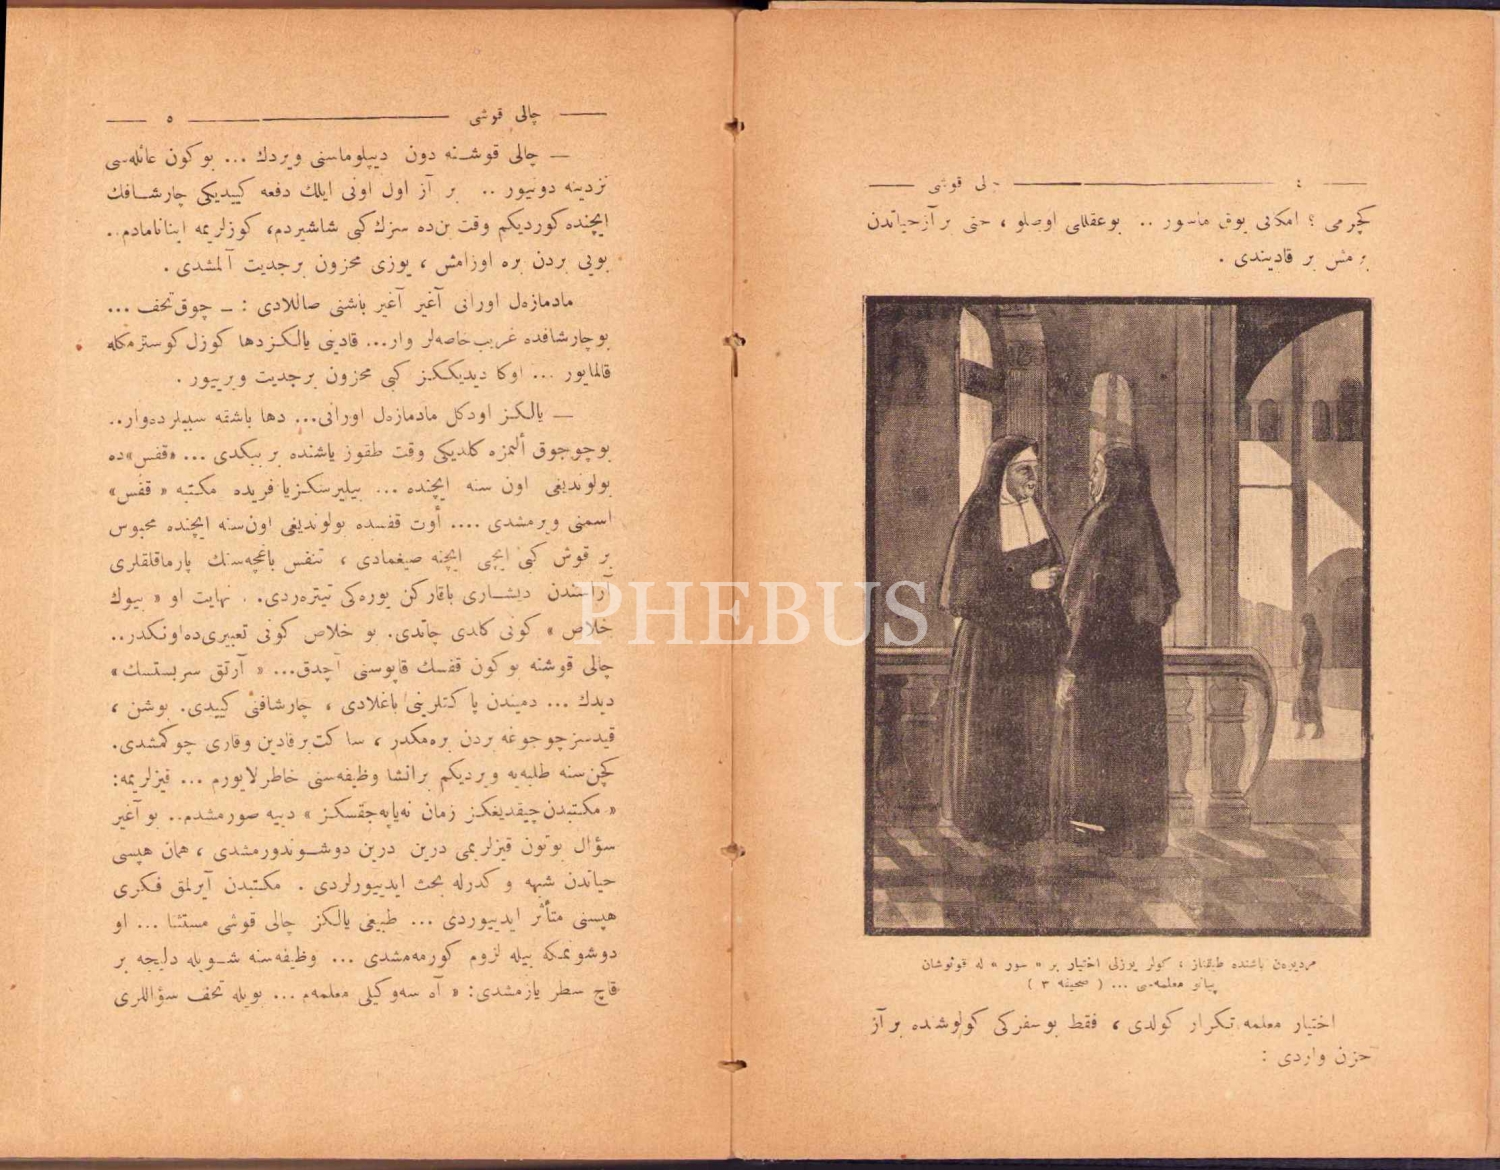 ٤ چالی قوشی
كچرمی ؟ امكانی یوق ماسور .. بوعقللی اوصلو ، حتی بر آز حیاتدن
بزمش بر قادیندی .
مردیوه‌ن باشنده طبقناز ، كولر یوزلی اختیار بر « سور » له قونوشان
پیانو معلمه‌سی ... ( صحیفه ٣ )
اختیار معلمه تكرار كولدی ، فقط بو سفركی كولوشده بر آز
حزن واردی :
چالی قوشی ٥
— چالی قوشـنه دون دیپلوماسنی ویردك ... بو كون عائله‌سی
نزدینه دونیور .. بر آز اول اونی ایلك دفعه كییدیكی چارشـافك
ایچنده كوردیكم وقت بن‌ده سزك كبی شاشیردم، كوزلریمه اینانامادم..
بویی بردن بره اوزامش ، یوزی محزون برجدیت آلمشدی .
مادمازه‌ل اورانی آغیر آغیر باشنی صاللادی : ـ چوق تحف ...
بوچارشافده غریب خاصه‌لر وار... قادینی یالكز دها كوزل كوسترمكله
قالمایور ... اوكا دیدیككز كبی محزون برجدیت ویرییور .
— یالكز اودكل مادمازه‌ل اورانی... دها باشقه سببلرده‌وار..
بوچوجوق ألمزه كلدیكی وقت طقوز یاشنده بر ببكدی ... «قفس»ده
بولوندیغی اون سنه ایچنده ... بیلیرسكزیا فریده مكتبه « قفس»
اسمنی ویرمشدی .... أوت قفسده بولوندیغی اون‌سنه ایچنده محبوس
بر قوش كبی ایچی ایچنه صیغمادی ، تنفس باغچه‌سنك پارماقلقلری
آراسندن دیشـاری باقاركن یوره‌كی تیتره‌ردی. . نهایت او « بیوك
خلاص » كونی كلدی چاتدی. بو خلاص كونی تعبیری‌ده‌اونكدر..
چالی قوشنه بوكون قفسك قاپوسنی آچدق... « آرتق سربستسك»
دیدك ... دمیندن پاكتلرینی باغلادی ، چارشافنی كییدی. بوشن ،
قیدسزچوجوغه بردن بره‌مكدر ، ساكت‌برقادین وقاری چوكمشدی.
كچن‌سنه طلبه‌یه ویردیكم برانشا وظیفه‌سنی خاطرلایورم ... قیزلریمه:
« مكتبدن چیقدیغكز زمان نه‌یاپه‌جقسكز » دییه صورمشدم.. بو آغیر
سؤال بوتون قیزلریمی درین درین دوشـوندورمشدی ، همان هپسی
حیاتدن شبهه و كدرله بحث ایدییورلردی . مكتبدن آیرلمق فكری
هپسنی متأثر ایدییوردی ... طبیعی یالكز چالی قوشی مستثنا ... او
دوشونمكه بیله لزوم كورمه‌مشدی ... وظیفه‌سنه شـویله دلیجه بر
قاچ سطر یازمشدی: « آه سه‌وكیلی معلمه‌م ... بویله تحف سؤاللری
PHEBUS